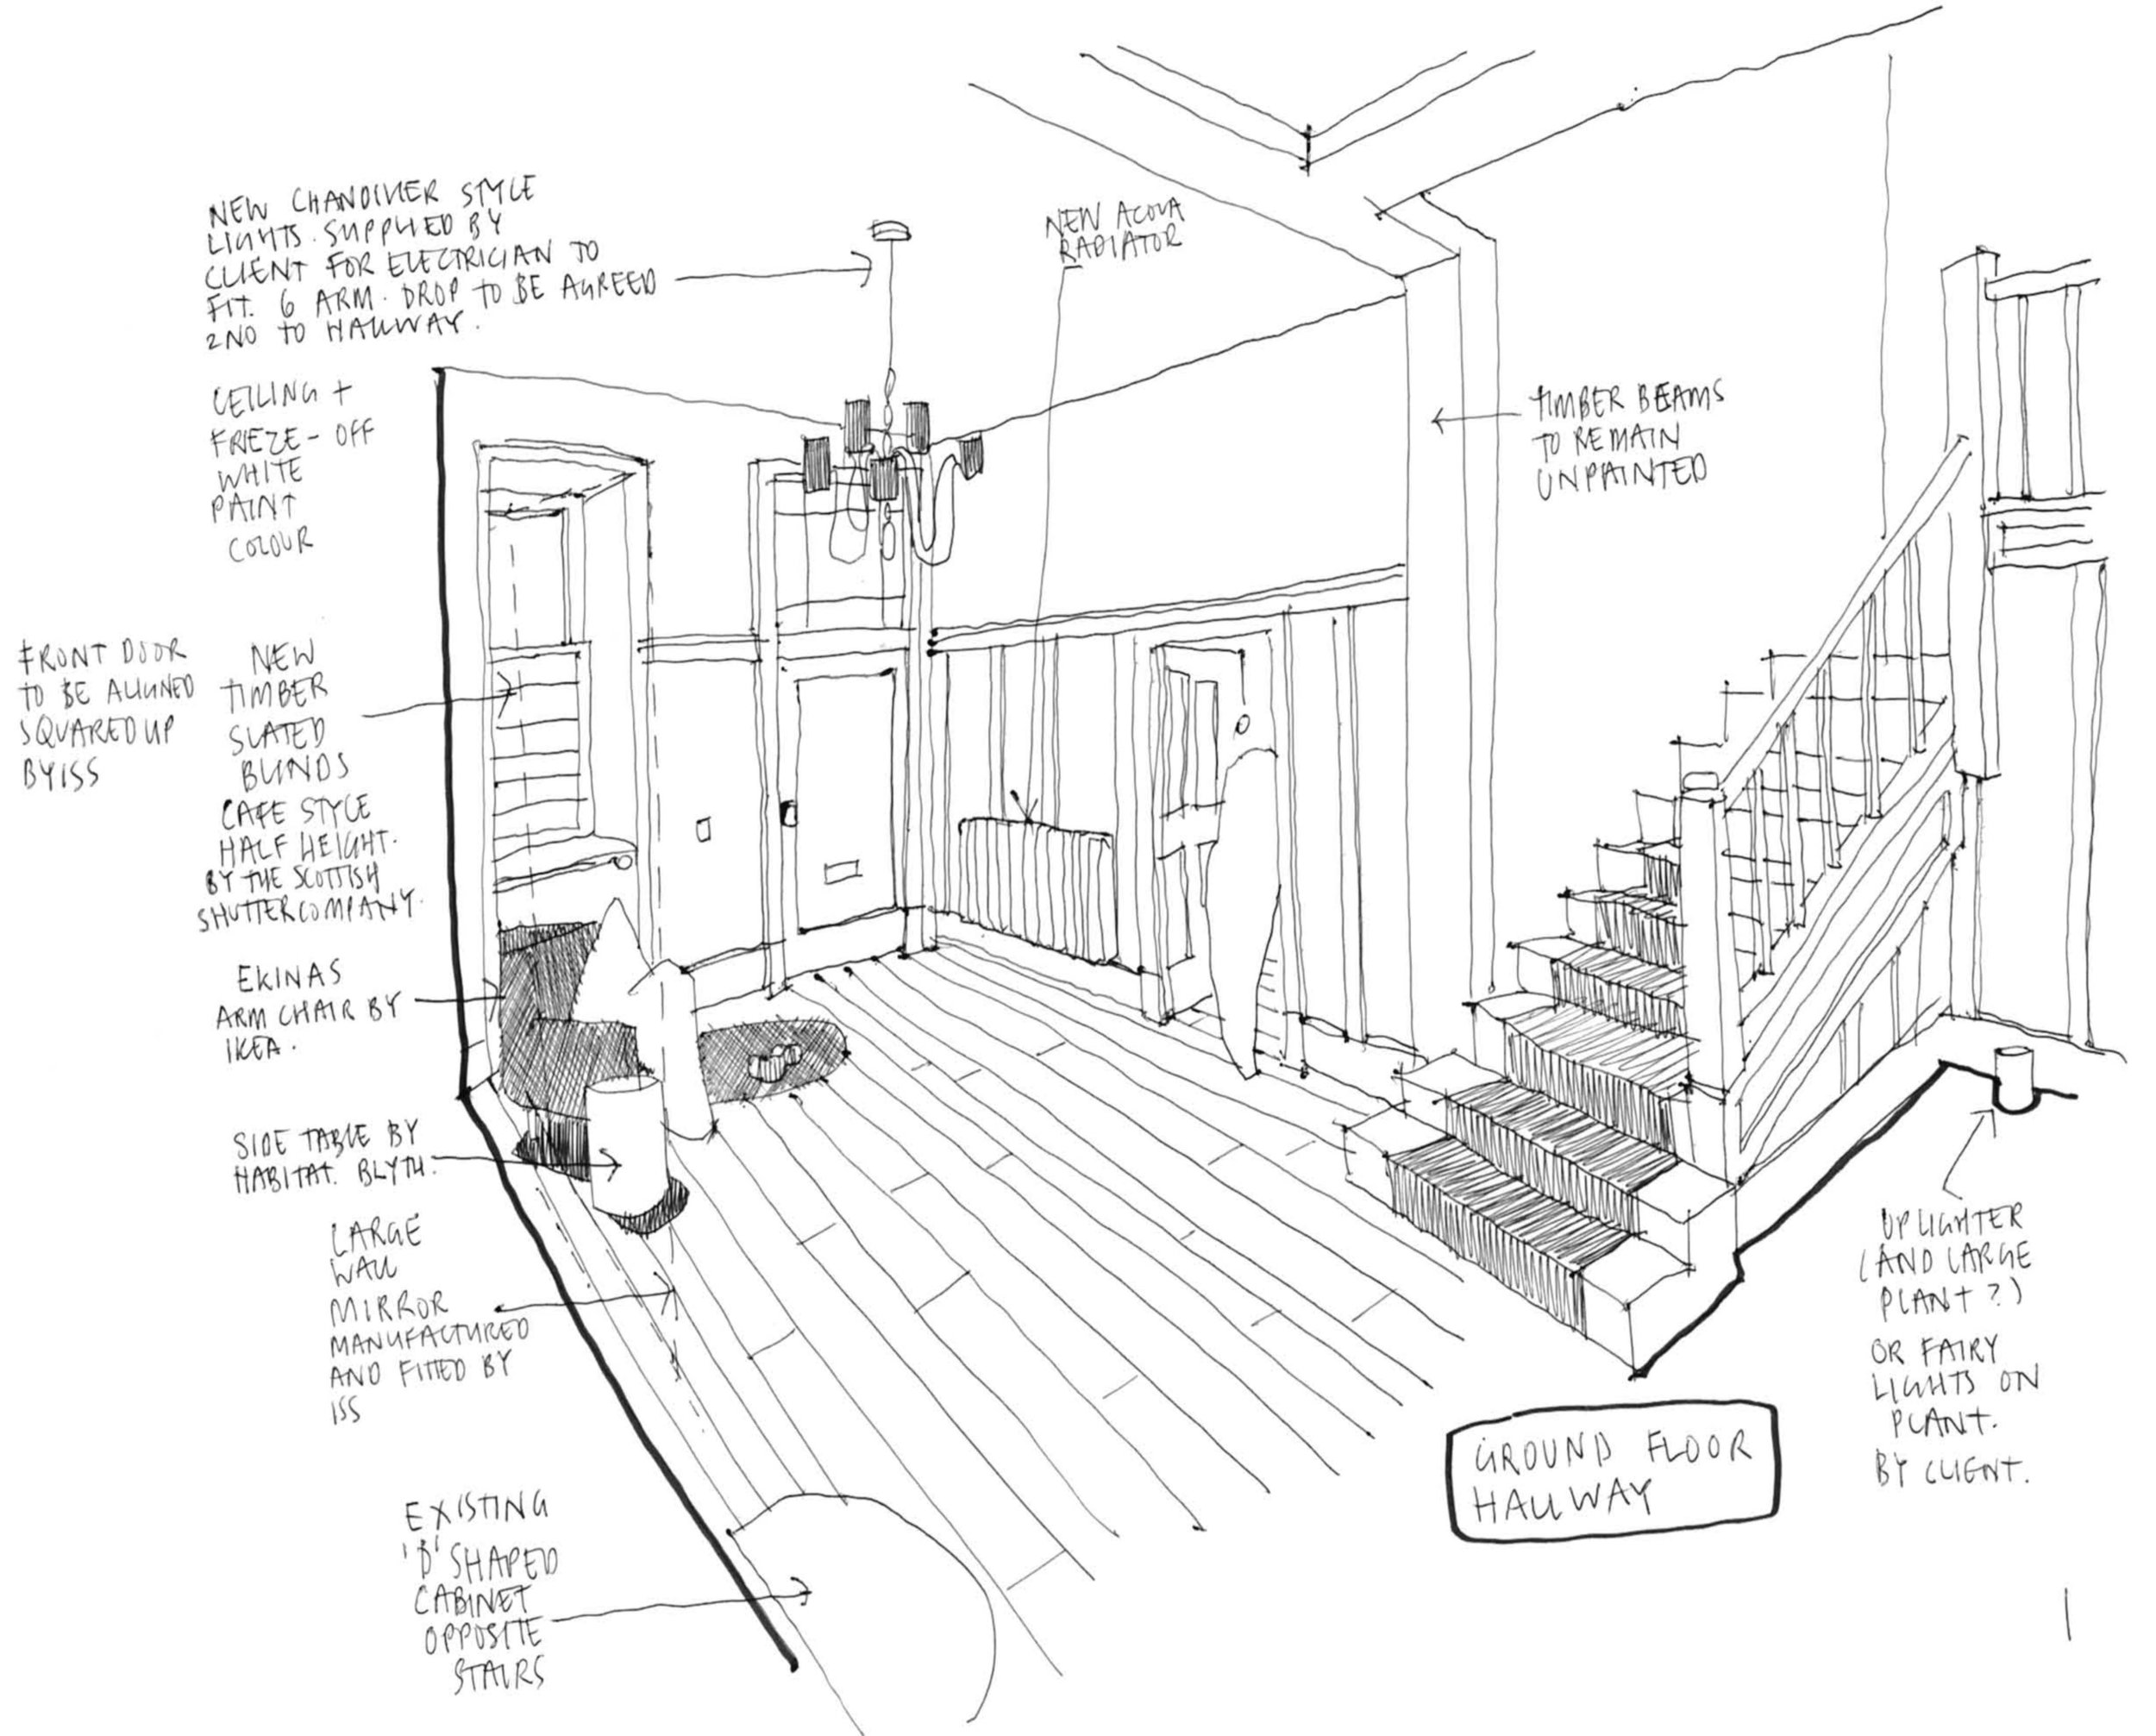 NEW CHANDILIER STYLE
LIGHTS. SUPPLIED BY
CLIENT FOR ELECTRICIAN TO
FIT. 6 ARM. DROP TO BE AGREED
2NO TO HALLWAY.
NEW ACOVA
RADIATOR
CEILING +
FRIEZE - OFF
WHITE
PAINT
COLOUR
TIMBER BEAMS
TO REMAIN
UNPAINTED
FRONT DOOR
TO BE ALIGNED
SQUARED UP
BY ISS
NEW
TIMBER
SLATED
BLINDS
CAFE STYLE
HALF HEIGHT.
BY THE SCOTTISH
SHUTTER COMPANY.
EKINAS
ARM CHAIR BY
IKEA.
SIDE TABLE BY
HABITAT. BLYTH.
LARGE
WALL
MIRROR
MANUFACTURED
AND FITTED BY
ISS
EXISTING
'D' SHAPED
CABINET
OPPOSITE
STAIRS
UPLIGHTER
(AND LARGE
PLANT?)
OR FAIRY
LIGHTS ON
PLANT.
BY CLIENT.
GROUND FLOOR
HALLWAY
1